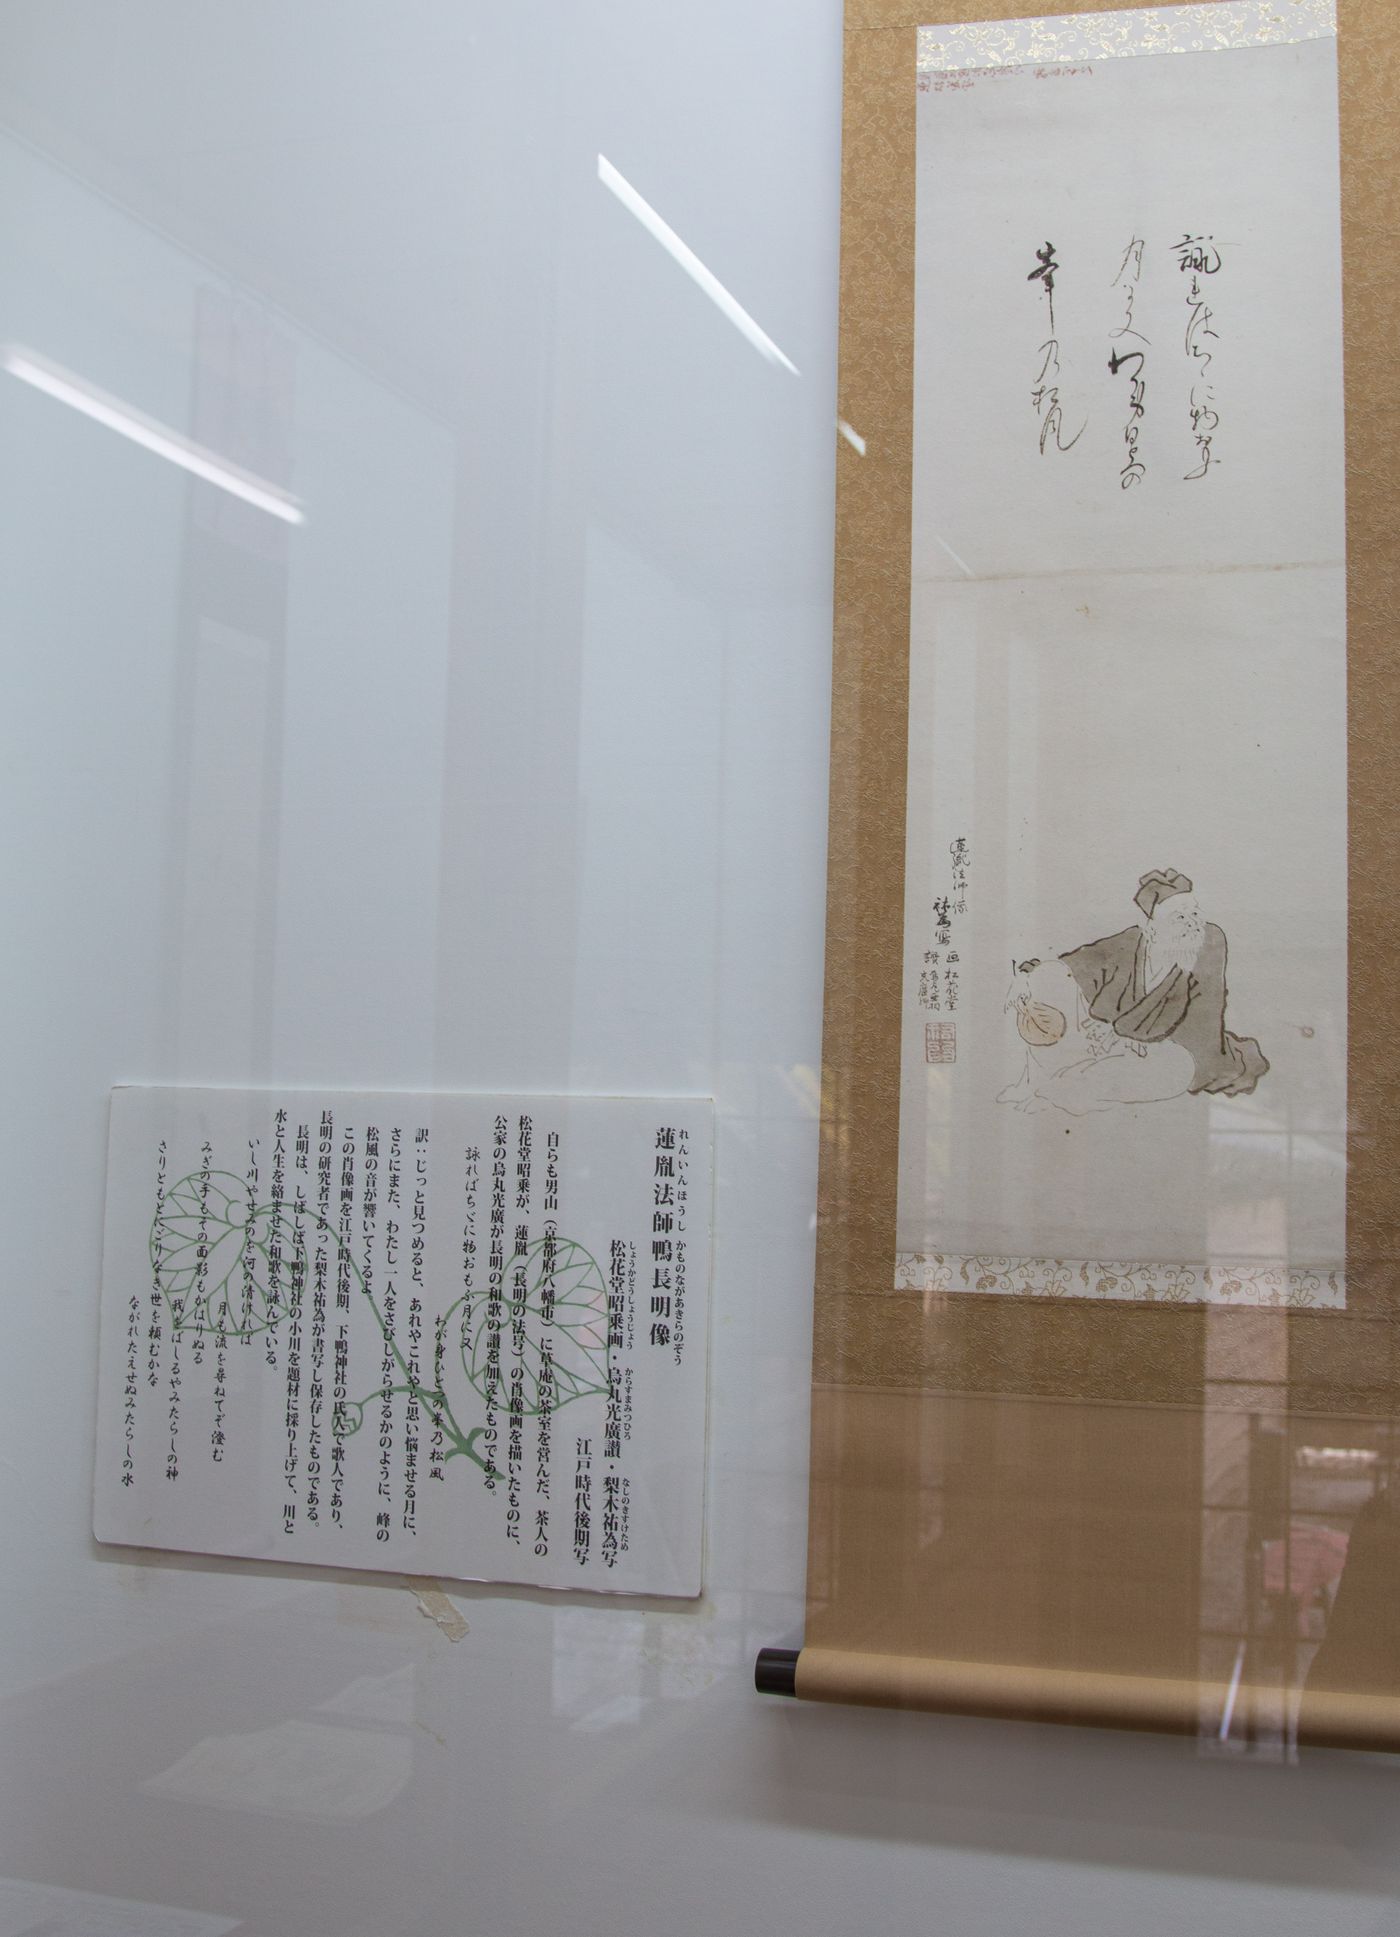 詠れはちゝに物おもふ
月に又わか身ひとつの
峯乃松風
蓮胤法師像
祐為写
画 松花堂
讃 烏丸亜相
光廣卿
蓮胤法師鴨長明像
れんいんほうし かものながあきらのぞう
松花堂昭乗画・烏丸光廣讃・梨木祐為写
しょうかどうしょうじょう からすまみつひろ なしのきすけため
江戸時代後期写
自らも男山（京都府八幡市）に草庵の茶室を営んだ、茶人の
松花堂昭乗が、蓮胤（長明の法号）の肖像画を描いたものに、
公家の烏丸光廣が長明の和歌の讃を加えたものである。
詠ればちぢに物おもふ月に又
わが身ひとつの峯乃松風
訳：じっと見つめると、あれやこれやと思い悩ませる月に、
さらにまた、わたし一人をさびしがらせるかのように、峰の
松風の音が響いてくるよ
この肖像画を江戸時代後期、下鴨神社の氏人で歌人であり、
長明の研究者であった梨木祐為が書写し保存したものである。
長明は、しばしば下鴨神社の小川を題材に採り上げて、川と
水と人生を絡ませた和歌を詠んでいる。
いし川やせみのを河の清ければ
月も流を尋ねてぞ澄む
みぎの手もその面影もかはりぬる
我をばしるやみたらしの神
さりともとにごりなき世を頼むかな
ながれたえせぬみたらしの水